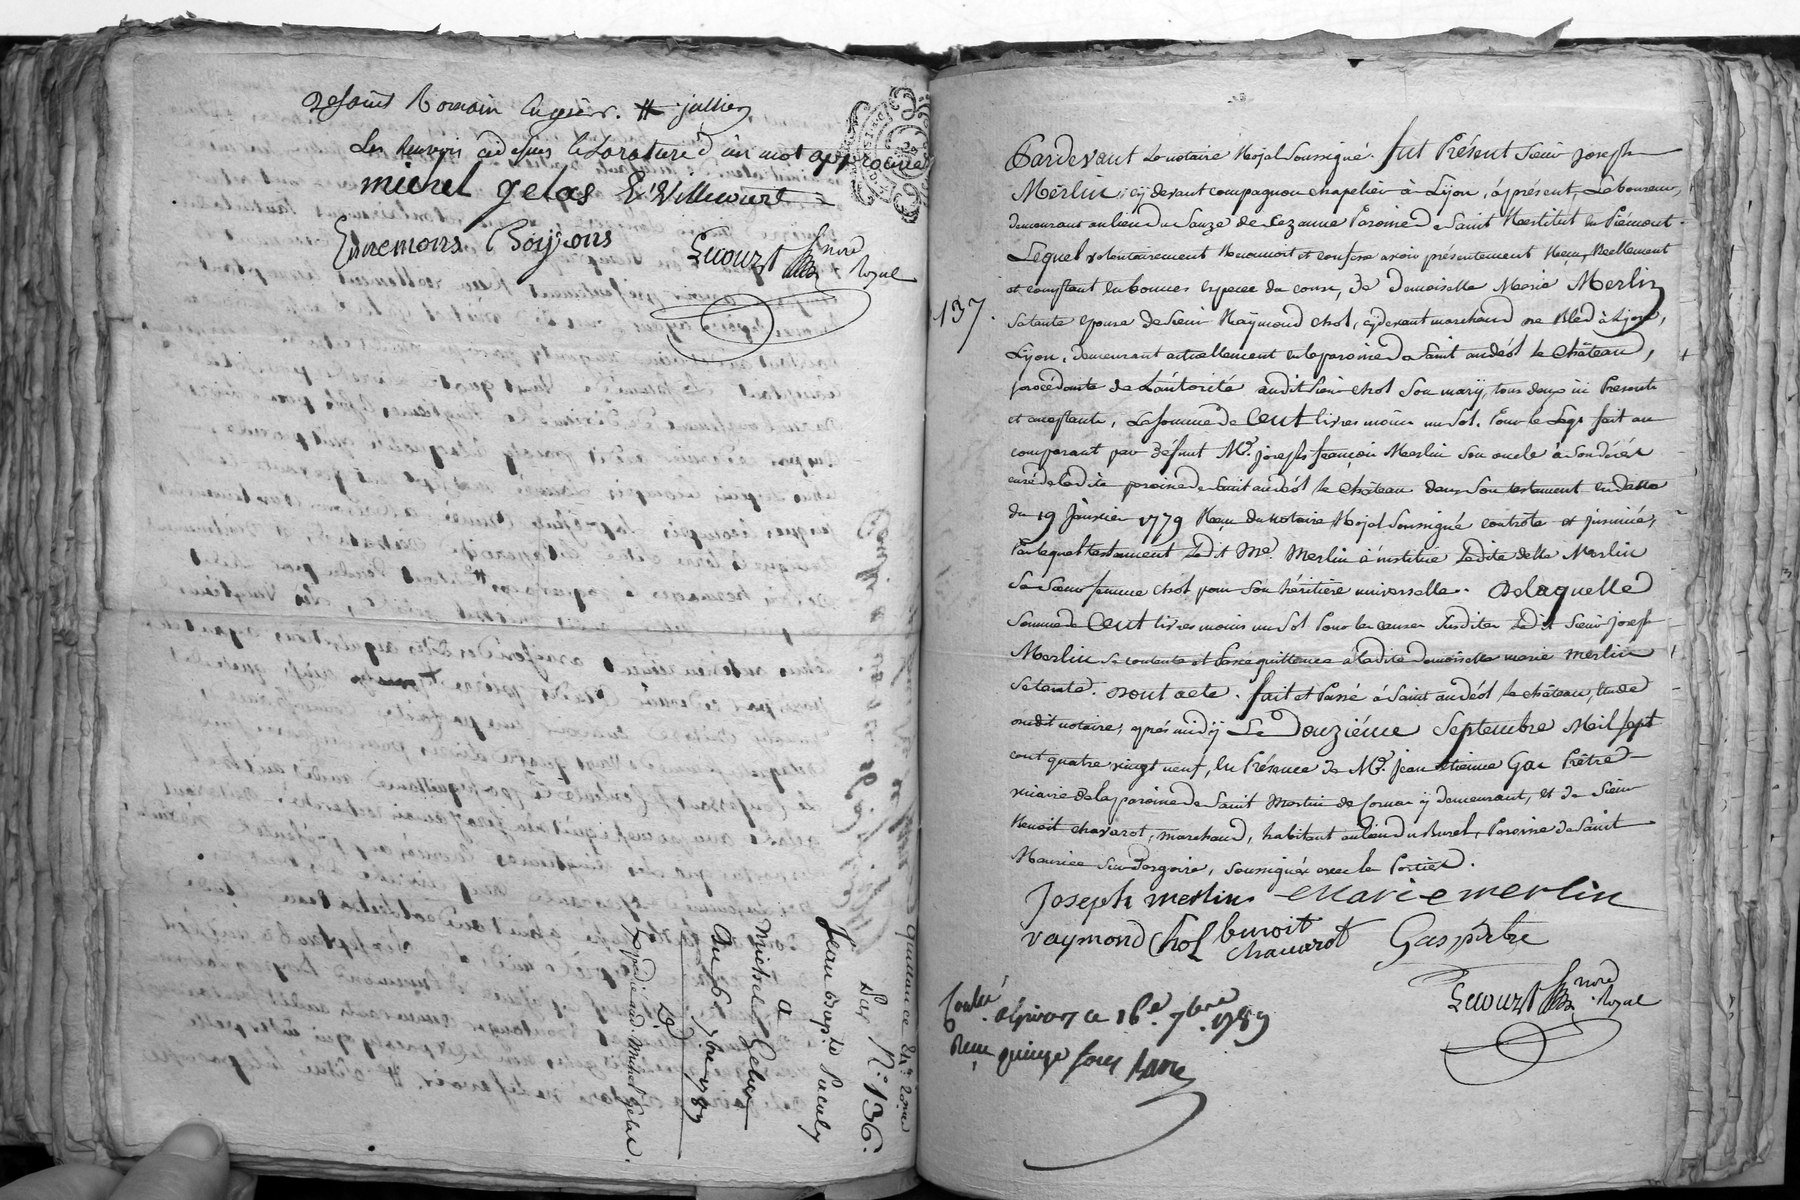 de saint Romain en gier. # jullien
Les Renvois cy dessus & la rature d'un mot approuvés
michel gelas E Villecourt
Ennemons Boyjons
Lecourt nore Royal
Quittance 24lt 20me
Par N.° 136.
Jean Baptte
a
Michel Gelas
Du 6e 7bre 1789
Expedié aud. Michel Gelas.
137.
Pardevant Le notaire Royal Soussigné. fut Présent Sieur joseph
Merlin, cÿ devant compagnon chapelier à Lÿon, àprésent, Laboureur,
demeurant au lieu du Sauze de Cezanne Paroisse de Saint Restitut en Piémont.
Lequel volontairement Reconnoit et confesse avoir présentement Reçu Reellement
et comptant en bonnes especes du cours, de Demoiselle Marie Merlin
sa tante epouse de Sieur Raÿmond Chol, cÿdevant marchand de Bled à Lÿon,
Lÿon, demeurant actuellement en la paroisse de Saint andéol le Château,
procédante de L'autorité dudit Sieur Chol Son marÿ, tous deux ici Presents
et acceptants, La somme de Cent livres moins un Sol. Pour le Legs fait au
comparant par défunt Mre. joseph françois Merlin Son oncle à Son décès
curé de ladite paroisse de Saint andéol le Château dans Son testament en datte
du 19 Janvier 1779 Reçu du notaire Roÿal Soussigné controlé et insinué,
Par lequel testament Ledit Me. Merlin à institué Ladite delle Merlin
Sa Sœur femme Chol pour Son héritiere universelle. De laquelle
Somme de Cent livres moins un Sol Pour les causes Susdites Ledit Sieur joseph
Merlin Se contente et Passe quittance à ladite demoiselle marie Merlin
Sa tante. Dont acte. fait et Passé à Saint andéol le château, Etude
dudit notaire, après midÿ Le Douziéme Septembre Mil sept
cent quatre vingt neuf, En Présence de Mre. jean etienne Gas Prêtre
vicaire de la paroisse de Saint Martin de Cornas ÿ demeurant, et de Sieur
Benoit chavarot, marchand, habitant au lieu du Burel, Paroisse de Saint
Maurice Sur Dargoire, Soussignés avec les Parties.
Joseph merlin Marie merlin
raymond Chol benoit chavarot Gas prêtre
Lecourt nore Royal
Conlé à Givors ce 16e. 7bre. 1789
Reçu quinze sous